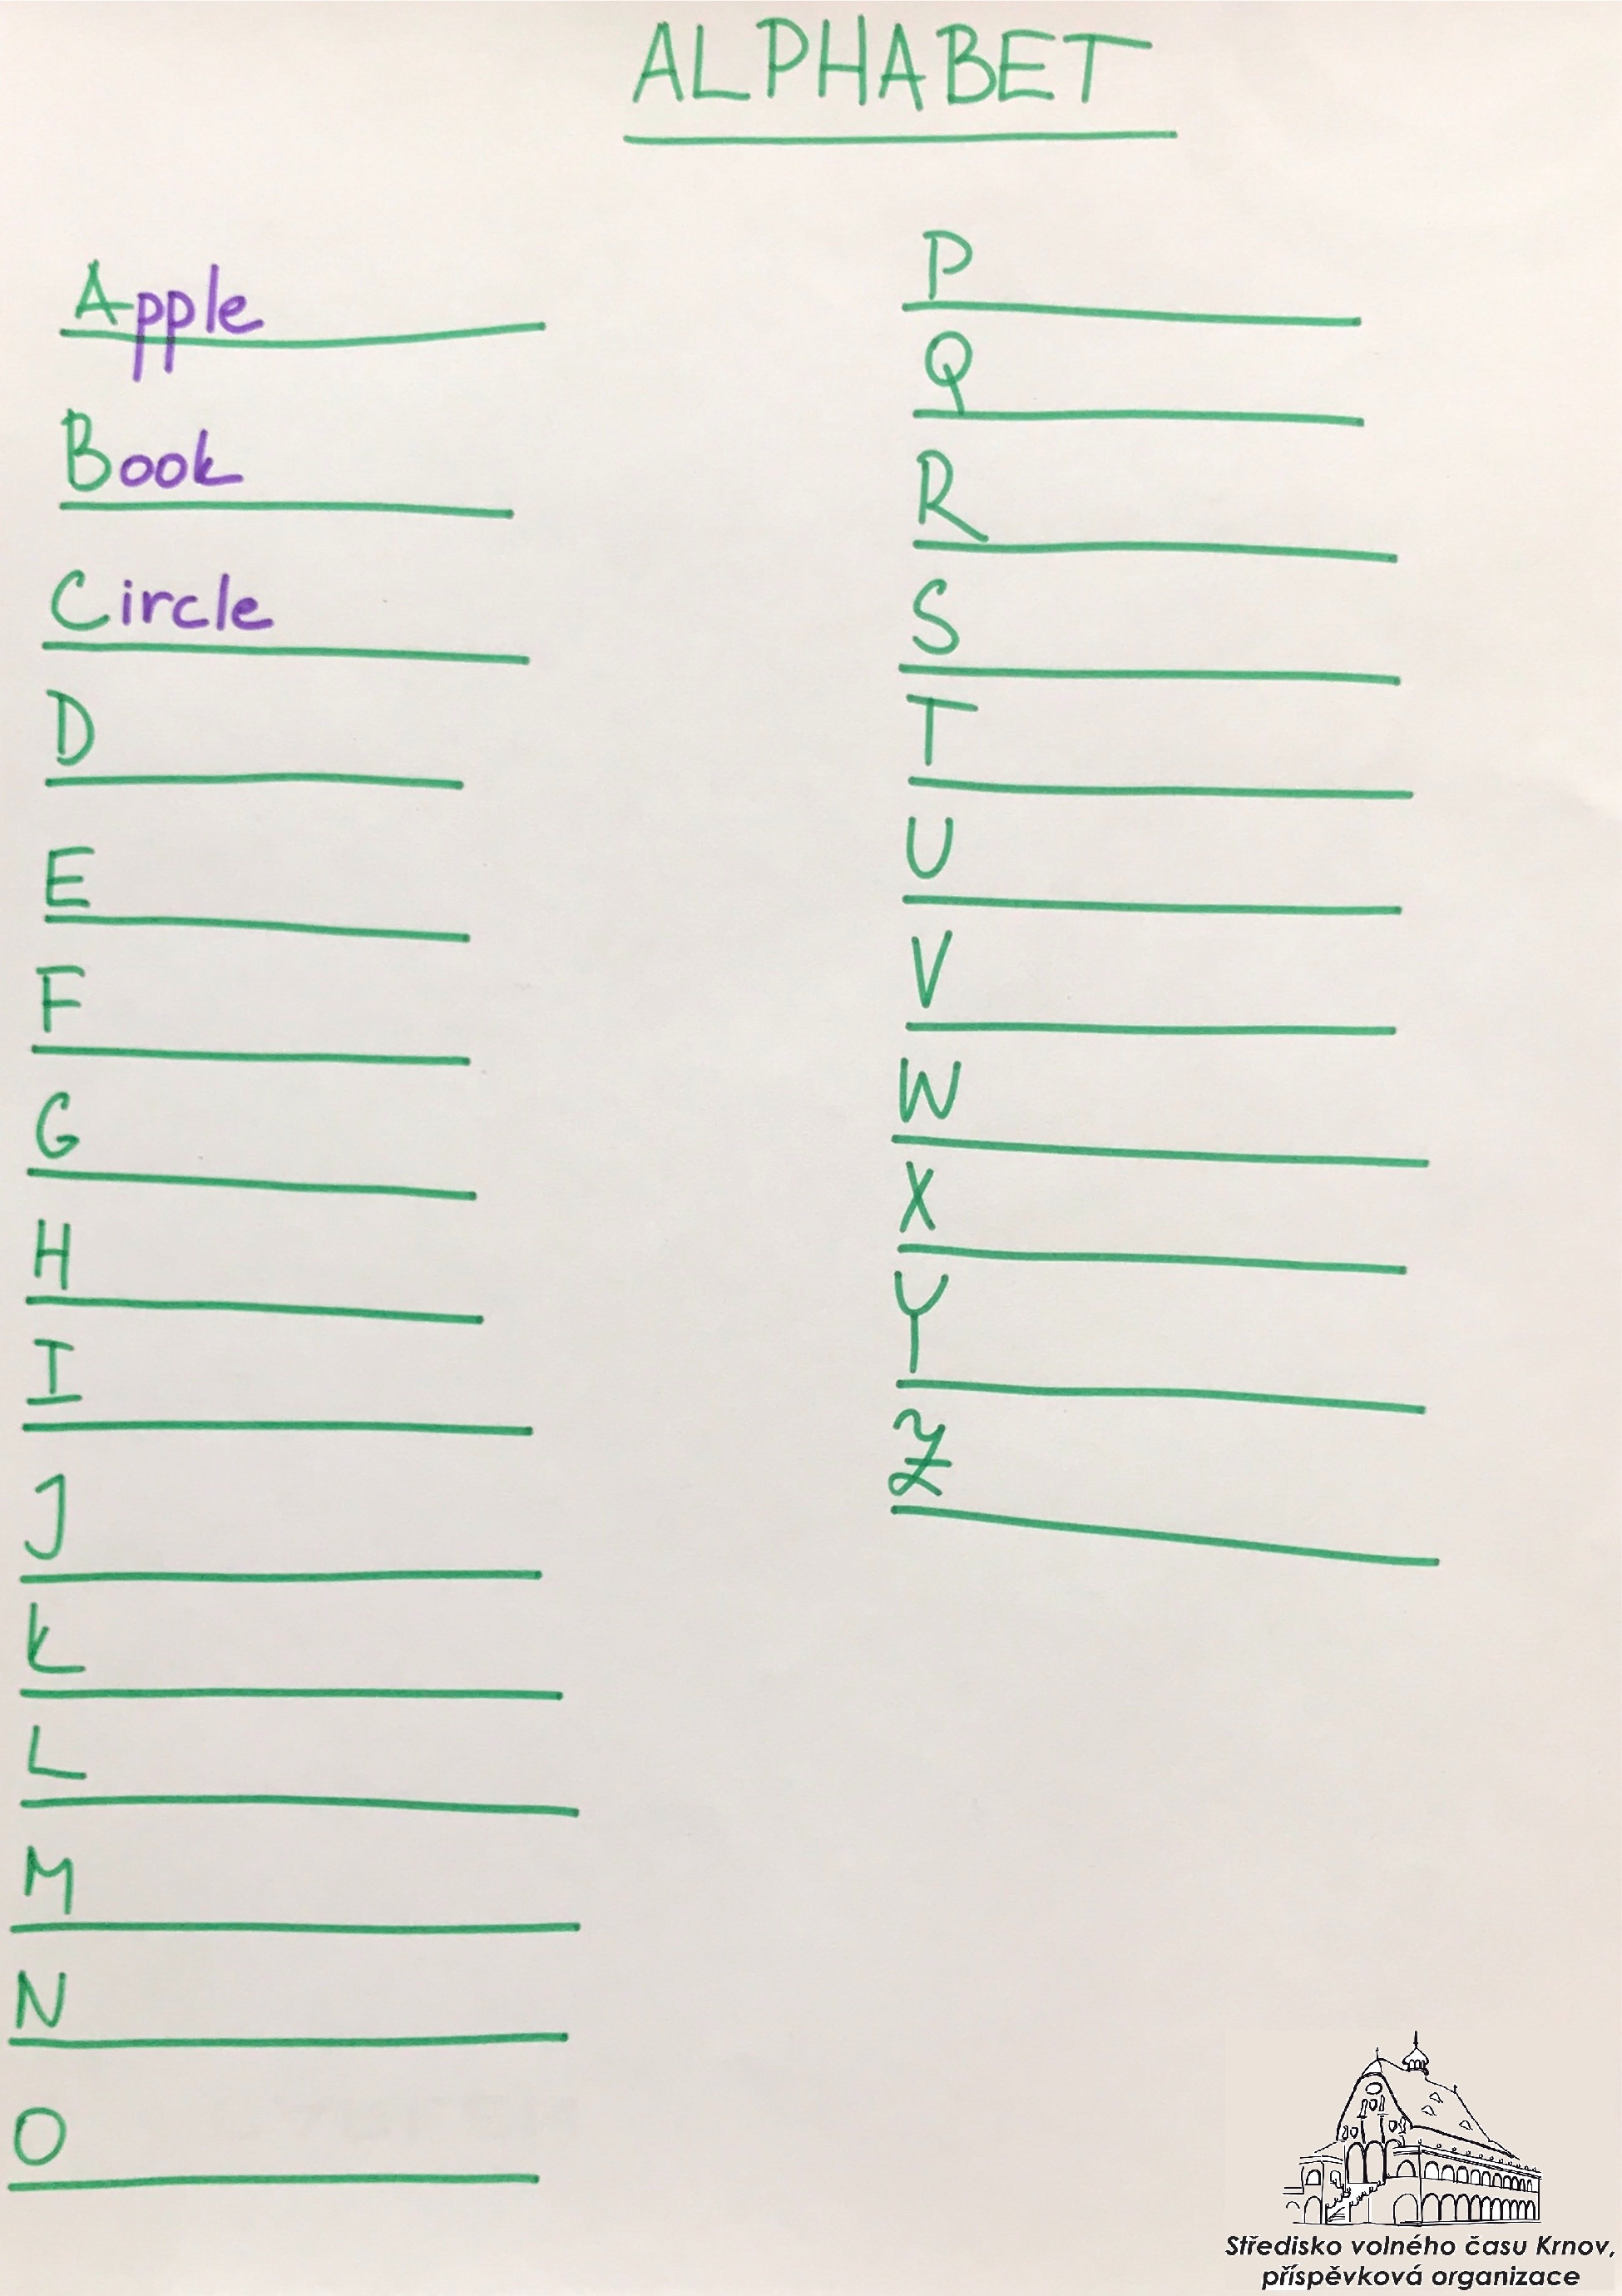 ALPHABET
Apple
Book
Circle
D
E
F
G
H
I
J
K
L
M
N
O
P
Q
R
S
T
U
V
W
X
Y
Z
Středisko volného času Krnov,
příspěvková organizace